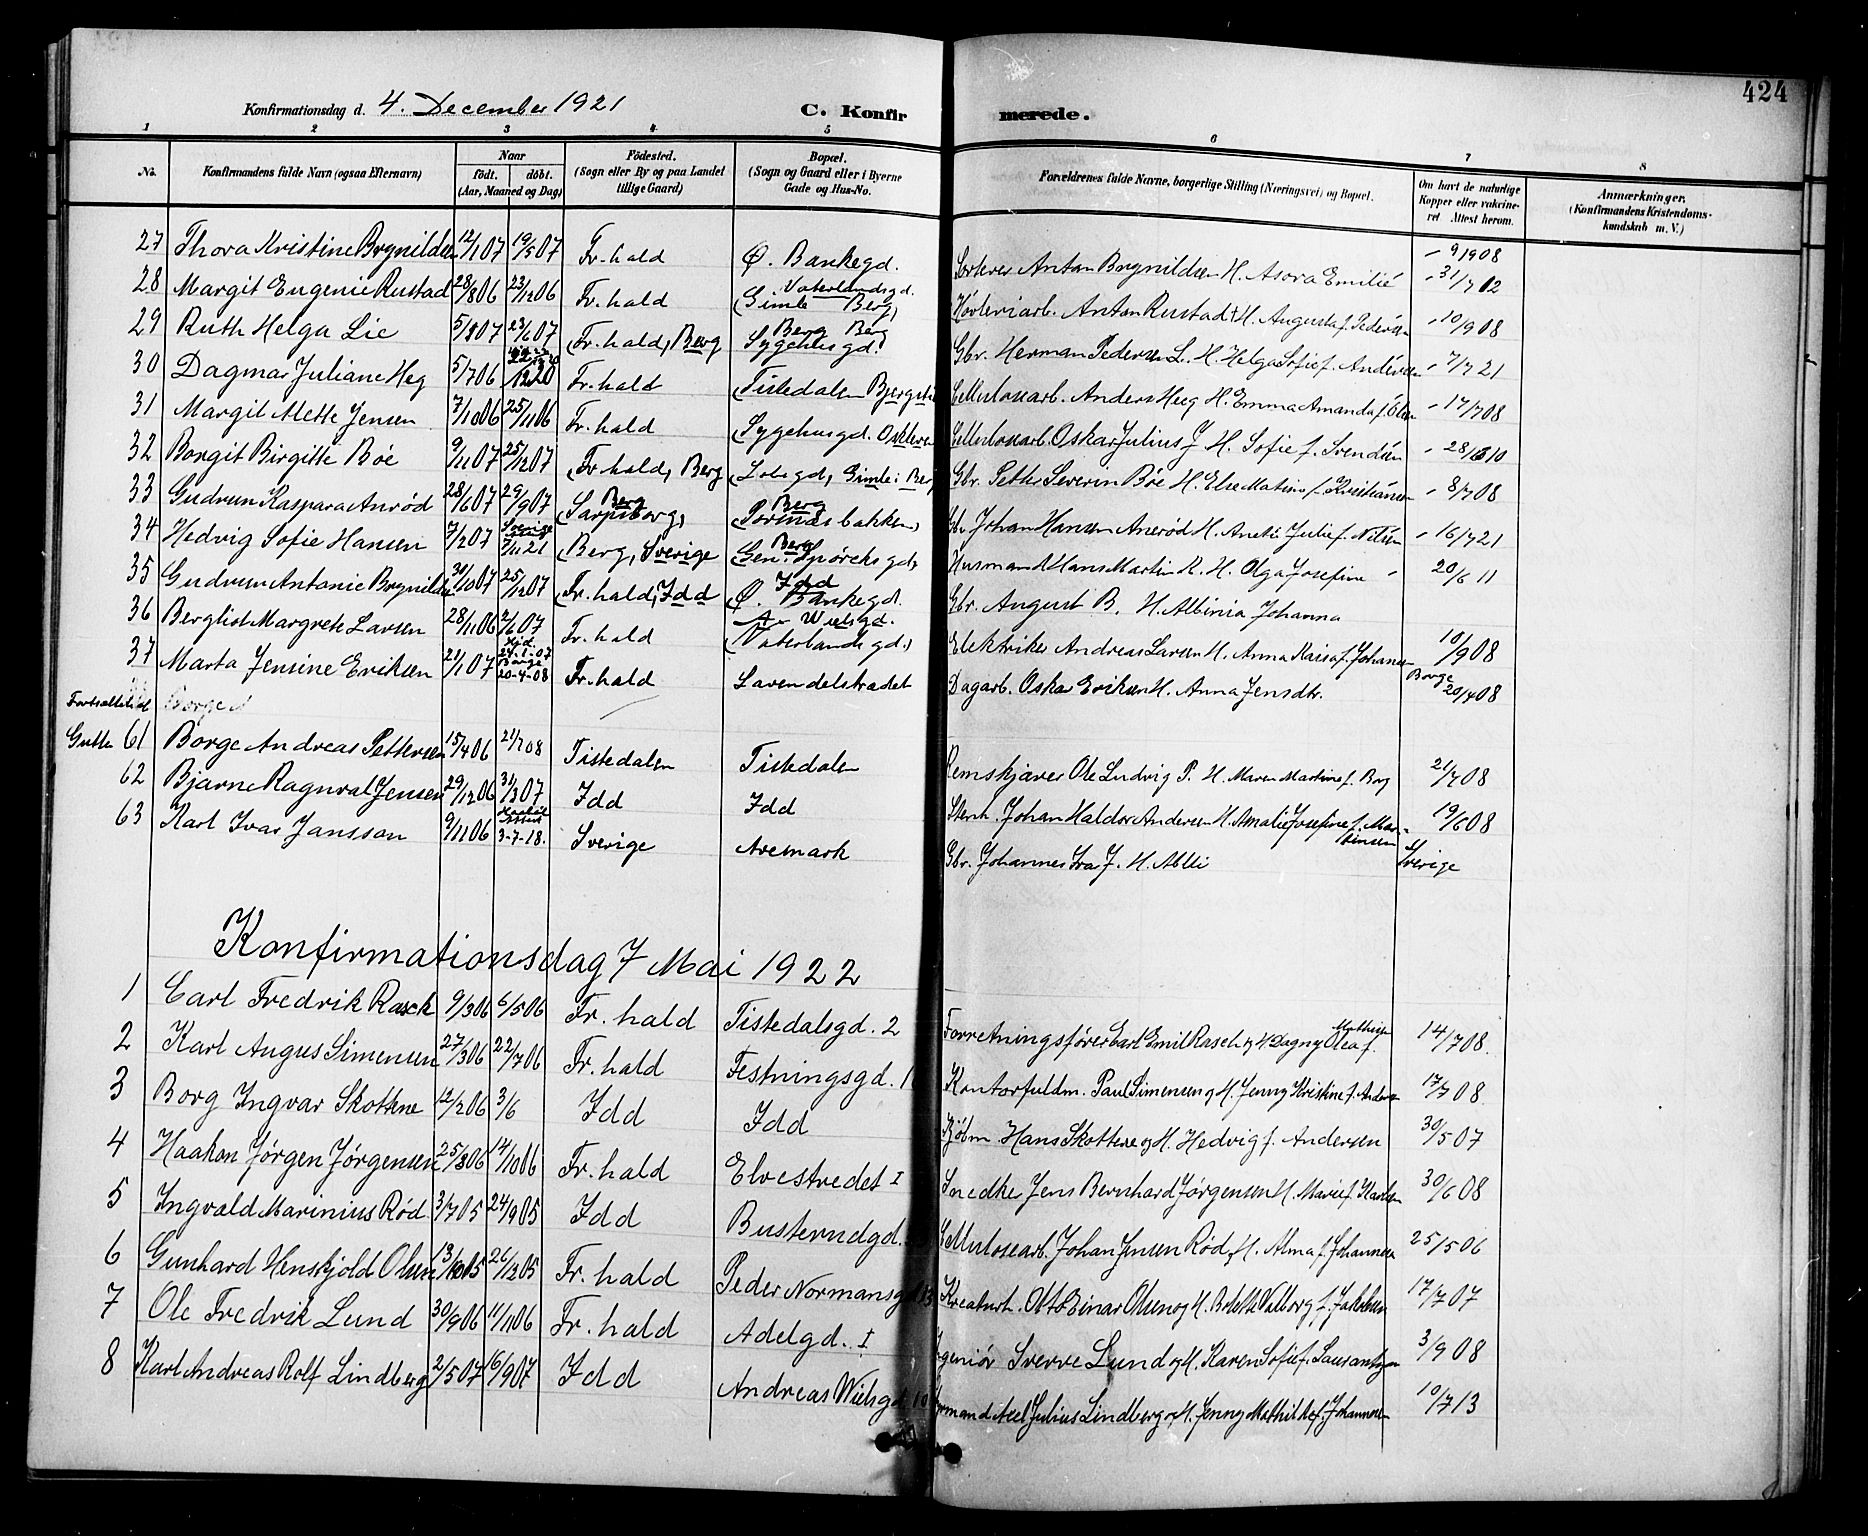 424
Konfirmationsdag d. 4. December 1921
C. Konfirmerede.
1 2 3 4 5 6 7 8
No.
Konfirmandens fulde Navn (ogsaa Efternavn)
Naar
födt. döbt.
(Aar, Maaned og Dag)
Födested.
(Sogn eller By og paa Landet tillige Gaard)
Bopæl.
(Sogn og Gaard eller i Byerne Gade og Hus-No.
Forældrenes fulde Navne, borgerlige Stilling (Næringsvei) og Bopæl.
Om havt de naturlige Kopper eller vakcineret Attest herom.
Anmærkninger.
(Konfirmandens Kristendomskundskab m. V.)
27 Thora Kristine Brynildsen 12/1 07 19/5 07 Fr.hald Ø. Bankegd. Sorterer Anton Brynildsen H. Asora Emilie - 9/9 08
28 Margit Eugenie Rustad 28/8 06 23/12 06 Fr.hald Vaterlandsgd. (Gimle Berg) Høvleriarb. Anton Rustad & H. Augusta f. Pedersen - 31/7 02
29 Ruth Helga Lie 5/8 07 23/6 07 (Fr.hald, Berg Berg Berg Sygehusgd. Gbr. Herman Pedersen L. H. Helga Sofie f. Andersen - 10/9 08
30 Dagmar Juliane Heg 5/7 06 1220 Fr.hald Tistedalen Bjergst Cellulosearb. Anders Heeg H. Emma Amanda f. Olsen - 7/7 21
31 Margit Alette Jensen 7/10 06 25/11 06 Fr.hald Sygehusgd. Cellulosearb. Oskar Julius J H. Sofie f. Svendsen - 17/7 08
32 Borgit Birgitte Bøe 9/11 07 25/12 07 (Fr.hald, Berg (Lolsgd, Gimle i Berg Gbr. Petter Severin Bøe H. Else Matine f. Kristiansen - 28/6 10
33 Gudrun Kaspara Anrød 28/6 07 29/9 07 Berg (Sarpsborg, Berg bakken) Gbr Johan Hansen Anerød H. Anette Julie f. Nilsen - 8/7 08
34 Hedvig Sofie Hansen 7/2 07 Sverige 7/11 21 (Berg, Sverige Berg (Gen. Spørcksgd, Husmand Hans Martin K. H. Olga Josefine - 16/7 21
35 Gudrun Antonie Brynildsen 31/10 07 25/12 07 (Fr.hald, Idd Idd Ø. Bankegd. Gbr. August B. H. Albinia Johanna 20/6 11
36 Bergliot Margrete Larsen 28/11 06 2/6 07 Fr.hald A. Wielsgd. (Vaterlandsgd.) Elektriker Andreas Larsen H. Anna Kaisa f. Johansen 10/9 08
37 Marta Jensine Eriksen 21/1 07 24-1-07 Borge 20-4-08 Fr.hald Lavendelstrædet Dagarb. Oskar Eriksen H. Anna Jensdtr. Borge 20/4 08
Fortsættelse
Gutter 61 Borge Andreas Pettersen 15/4 06 21/7 08 Tistedalen Tistedalen Remskjærer Ole Ludvig P. H. Maren Martine f. Borg 21/7 08
62 Bjarne Ragnval Jensen 29/12 06 31/3 07 Idd Idd Stenh. Johan Haldor Andersen H. Amalie Josefine f. Martinsen 19/6 08
63 Karl Ivar Jansson 9/11 06 3-7-18. Sverige Aremark Gbr. Johannes Iva J. H. Ablli Sverige
Konfirmationsdag 7 Mai 1922
1 Carl Fredrik Rasch 9/3 06 6/5 06 Fr. hald Tistedalsgd. 2 Forretningsfører Carl Emil Rasch og H Dagny Olea f. Mathisen 14/7 08.
2 Karl Angus Simensen 27/3 06 22/7 06 Fr. hald Festningsgd. 1 Kontorfuldm. Paul Simensen og H. Jenny Kristine f. Andersen 17/7 08.
3 Borg Ingvar Skottene 12/2 06 3/6 Idd Idd Kjøbm Hans Skottene og H. Hedvig f. Andersen 30/5 07
4 Haakon Jørgen Jørgensen 25/8 06 14/10 06 Fr. hald Elvestredet I Snedker Jens Bernhard Jørgensen H. Marie f. Karlsen 30/6 08
5 Ingvald Marinius Rød 3/7 05 24/9 05 Idd Busterudgd. Cellulosearb. Johan Jensen Rød, H. Alma f. Johannesen 25/5 06
6 Gunhard Henskjold Olsen 13/10 05 26/12 05 Fr. hald Peder Normansgd 13 Kreaturh. Otto Einar Olsen og H. Botelte Valborg f. Jakobsen 17/7 07
7 Ole Fredrik Lund 30/9 06 11/11 06 Fr. hald Adelgd. I Ingeniør Sverre Lund og H. Karen Sofie f. Laurantzon 3/9 08
8 Karl Andreas Rolf Lindberg 2/5 07 6/9 07 Idd Andreas Wielsgd 10 Formand Axel Julius Lindberg og H. Jenny Mathilde f. Johannesen 10/7 13